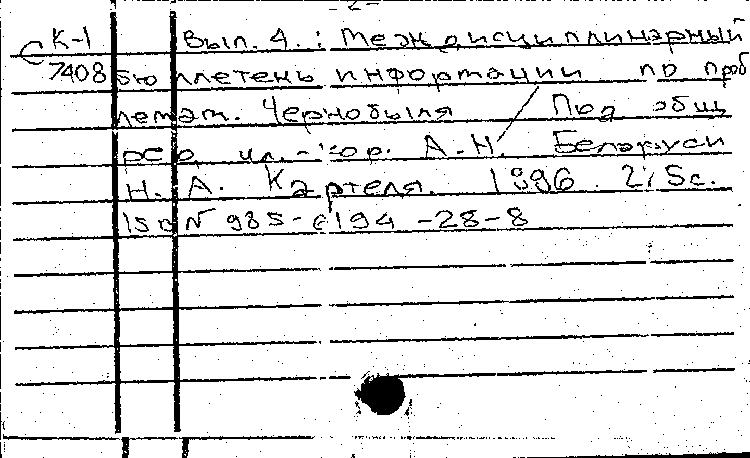 -2-
С К-1 Вып. 4. : Междисциплинарный
7408 бюллетень информации по проб
лемам. Чернобыля / Под общ
ред. чл.-кор. А.Н. Беларуси
Н. А. Картеля. 1996. 215с.
ISBN 985-6194-28-8